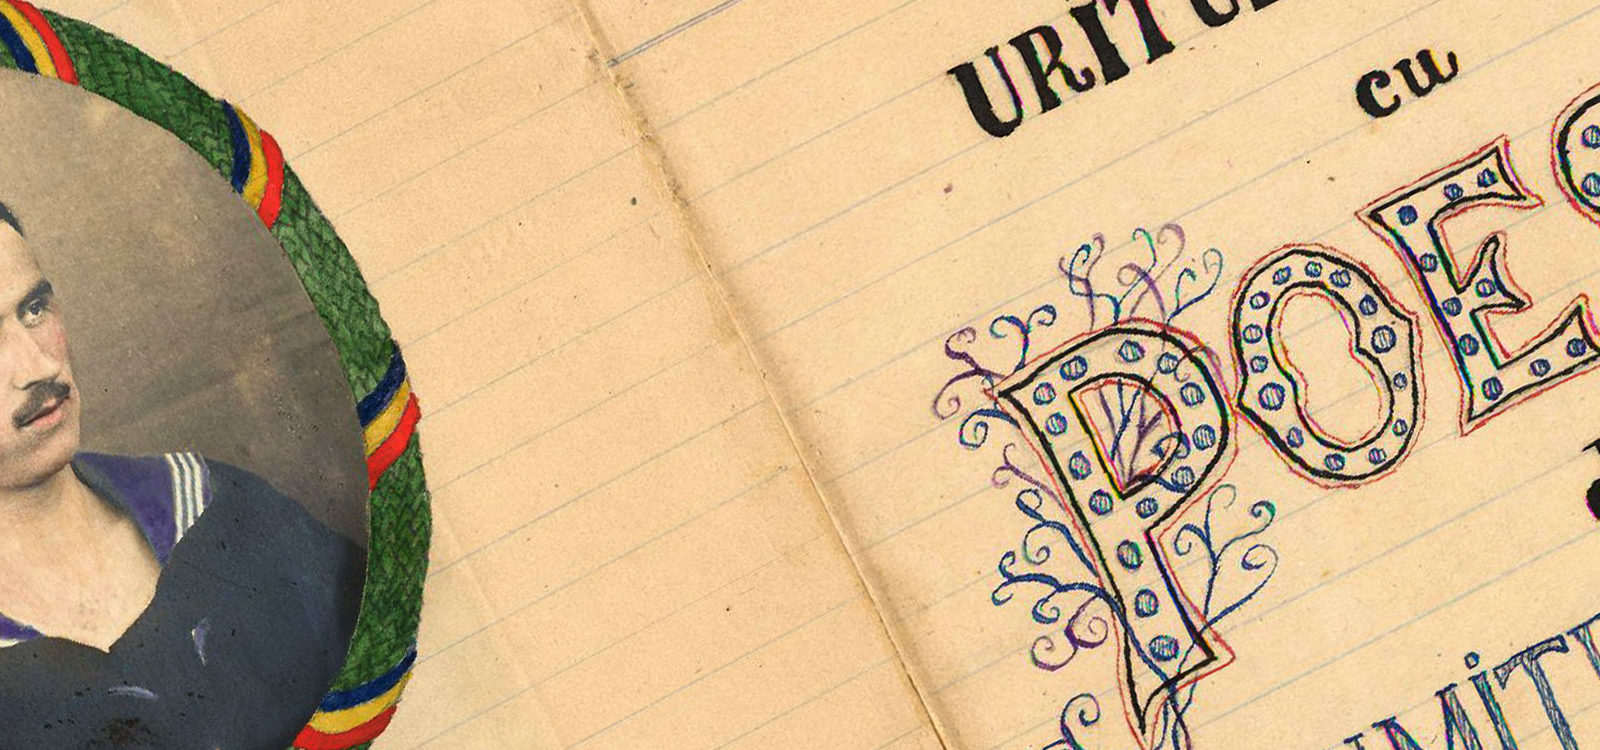 URITU
cu
POES
MIT